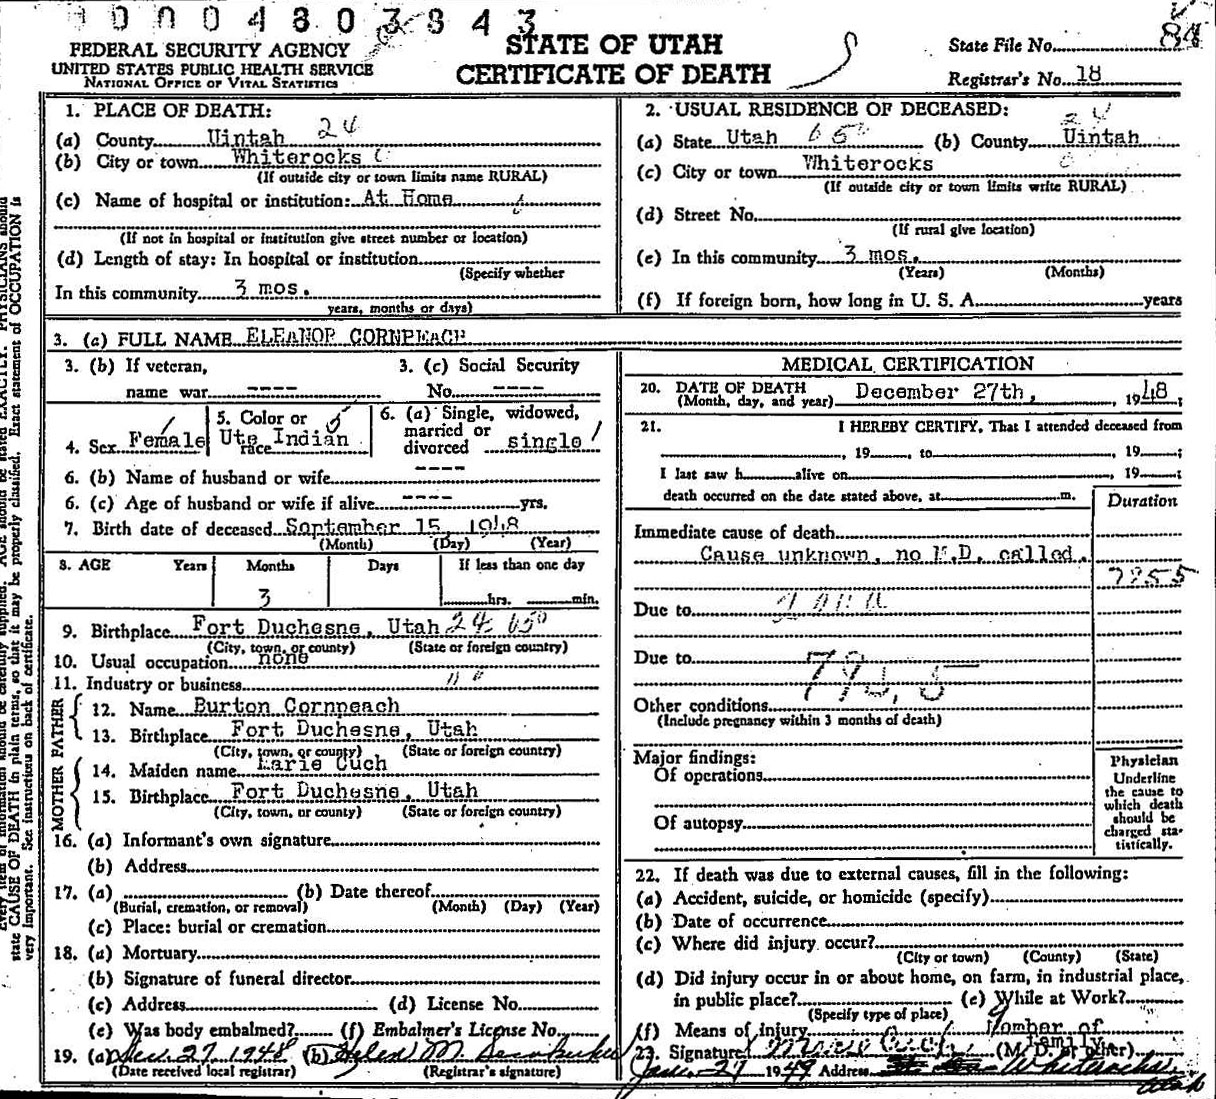 10004803843
FEDERAL SECURITY AGENCY
UNITED STATES PUBLIC HEALTH SERVICE
NATIONAL OFFICE OF VITAL STATISTICS
STATE OF UTAH
CERTIFICATE OF DEATH
State File No. 84
Registrar's No. 18
1. PLACE OF DEATH:
(a) County Uintah 24
(b) City or town Whiterocks
(If outside city or town limits name RURAL)
(c) Name of hospital or institution: At Home
(If not in hospital or institution give street number or location)
(d) Length of stay: In hospital or institution
(Specify whether
In this community 3 mos.
years, months or days)
2. USUAL RESIDENCE OF DECEASED:
24
(a) State Utah 65 (b) County Uintah
(c) City or town Whiterocks
(If outside city or town limits write RURAL)
(d) Street No.
(If rural give location)
(e) In this community 3 mos.
(Years) (Months)
(f) If foreign born, how long in U. S. A. years
3. (a) FULL NAME ELEANOR CORNPEACH
3. (b) If veteran, 3. (c) Social Security
name war ---- No. ----
4. Sex Female
5. Color or race Ute Indian 5
6. (a) Single, widowed, married or divorced single 1
6. (b) Name of husband or wife ----
6. (c) Age of husband or wife if alive ---- yrs.
7. Birth date of deceased September 15, 1948
(Month) (Day) (Year)
8. AGE Years Months Days If less than one day
3 hrs. min.
9. Birthplace Fort Duchesne, Utah 24 650
(City, town, or county) (State or foreign country)
10. Usual occupation none
11. Industry or business " "
FATHER
12. Name Burton Cornpeach
13. Birthplace Fort Duchesne, Utah
(City, town, or county) (State or foreign country)
MOTHER
14. Maiden name Marie Cuch
15. Birthplace Fort Duchesne, Utah
(City, town, or county) (State or foreign country)
16. (a) Informant's own signature
(b) Address
17. (a) (b) Date thereof
(Burial, cremation, or removal) (Month) (Day) (Year)
(c) Place: burial or cremation
18. (a) Mortuary
(b) Signature of funeral director
(c) Address (d) License No.
(e) Was body embalmed? (f) Embalmer's License No.
19. (a) Dec. 27, 1948 (b) Helen M.
(Date received local registrar) (Registrar's signature)
MEDICAL CERTIFICATION
20. DATE OF DEATH
(Month, day, and year) December 27th, 1948;
21. I HEREBY CERTIFY, That I attended deceased from
, 19 , to , 19 ;
I last saw h alive on 19 ;
death occurred on the date stated above, at m.
Duration
Immediate cause of death
Cause unknown, no M.D. called.
7955
Due to
Due to
795.5
Other conditions
(Include pregnancy within 3 months of death)
Major findings:
Of operations
Of autopsy
Physician
Underline
the cause to
which death
should be
charged sta-
tistically.
22. If death was due to external causes, fill in the following:
(a) Accident, suicide, or homicide (specify)
(b) Date of occurrence
(c) Where did injury occur?
(City or town) (County) (State)
(d) Did injury occur in or about home, on farm, in industrial place,
in public place? (e) While at Work?
(Specify type of place)
(f) Means of injury
Member of
family
23. Signature Marie Cuch (M. D. or other)
Jan. 27 1949 Address Whiterocks,
Utah
state CAUSE OF DEATH in plain terms, so that it may be properly classified. Exact statement of OCCUPATION is
very important. See instructions on back of certificate.